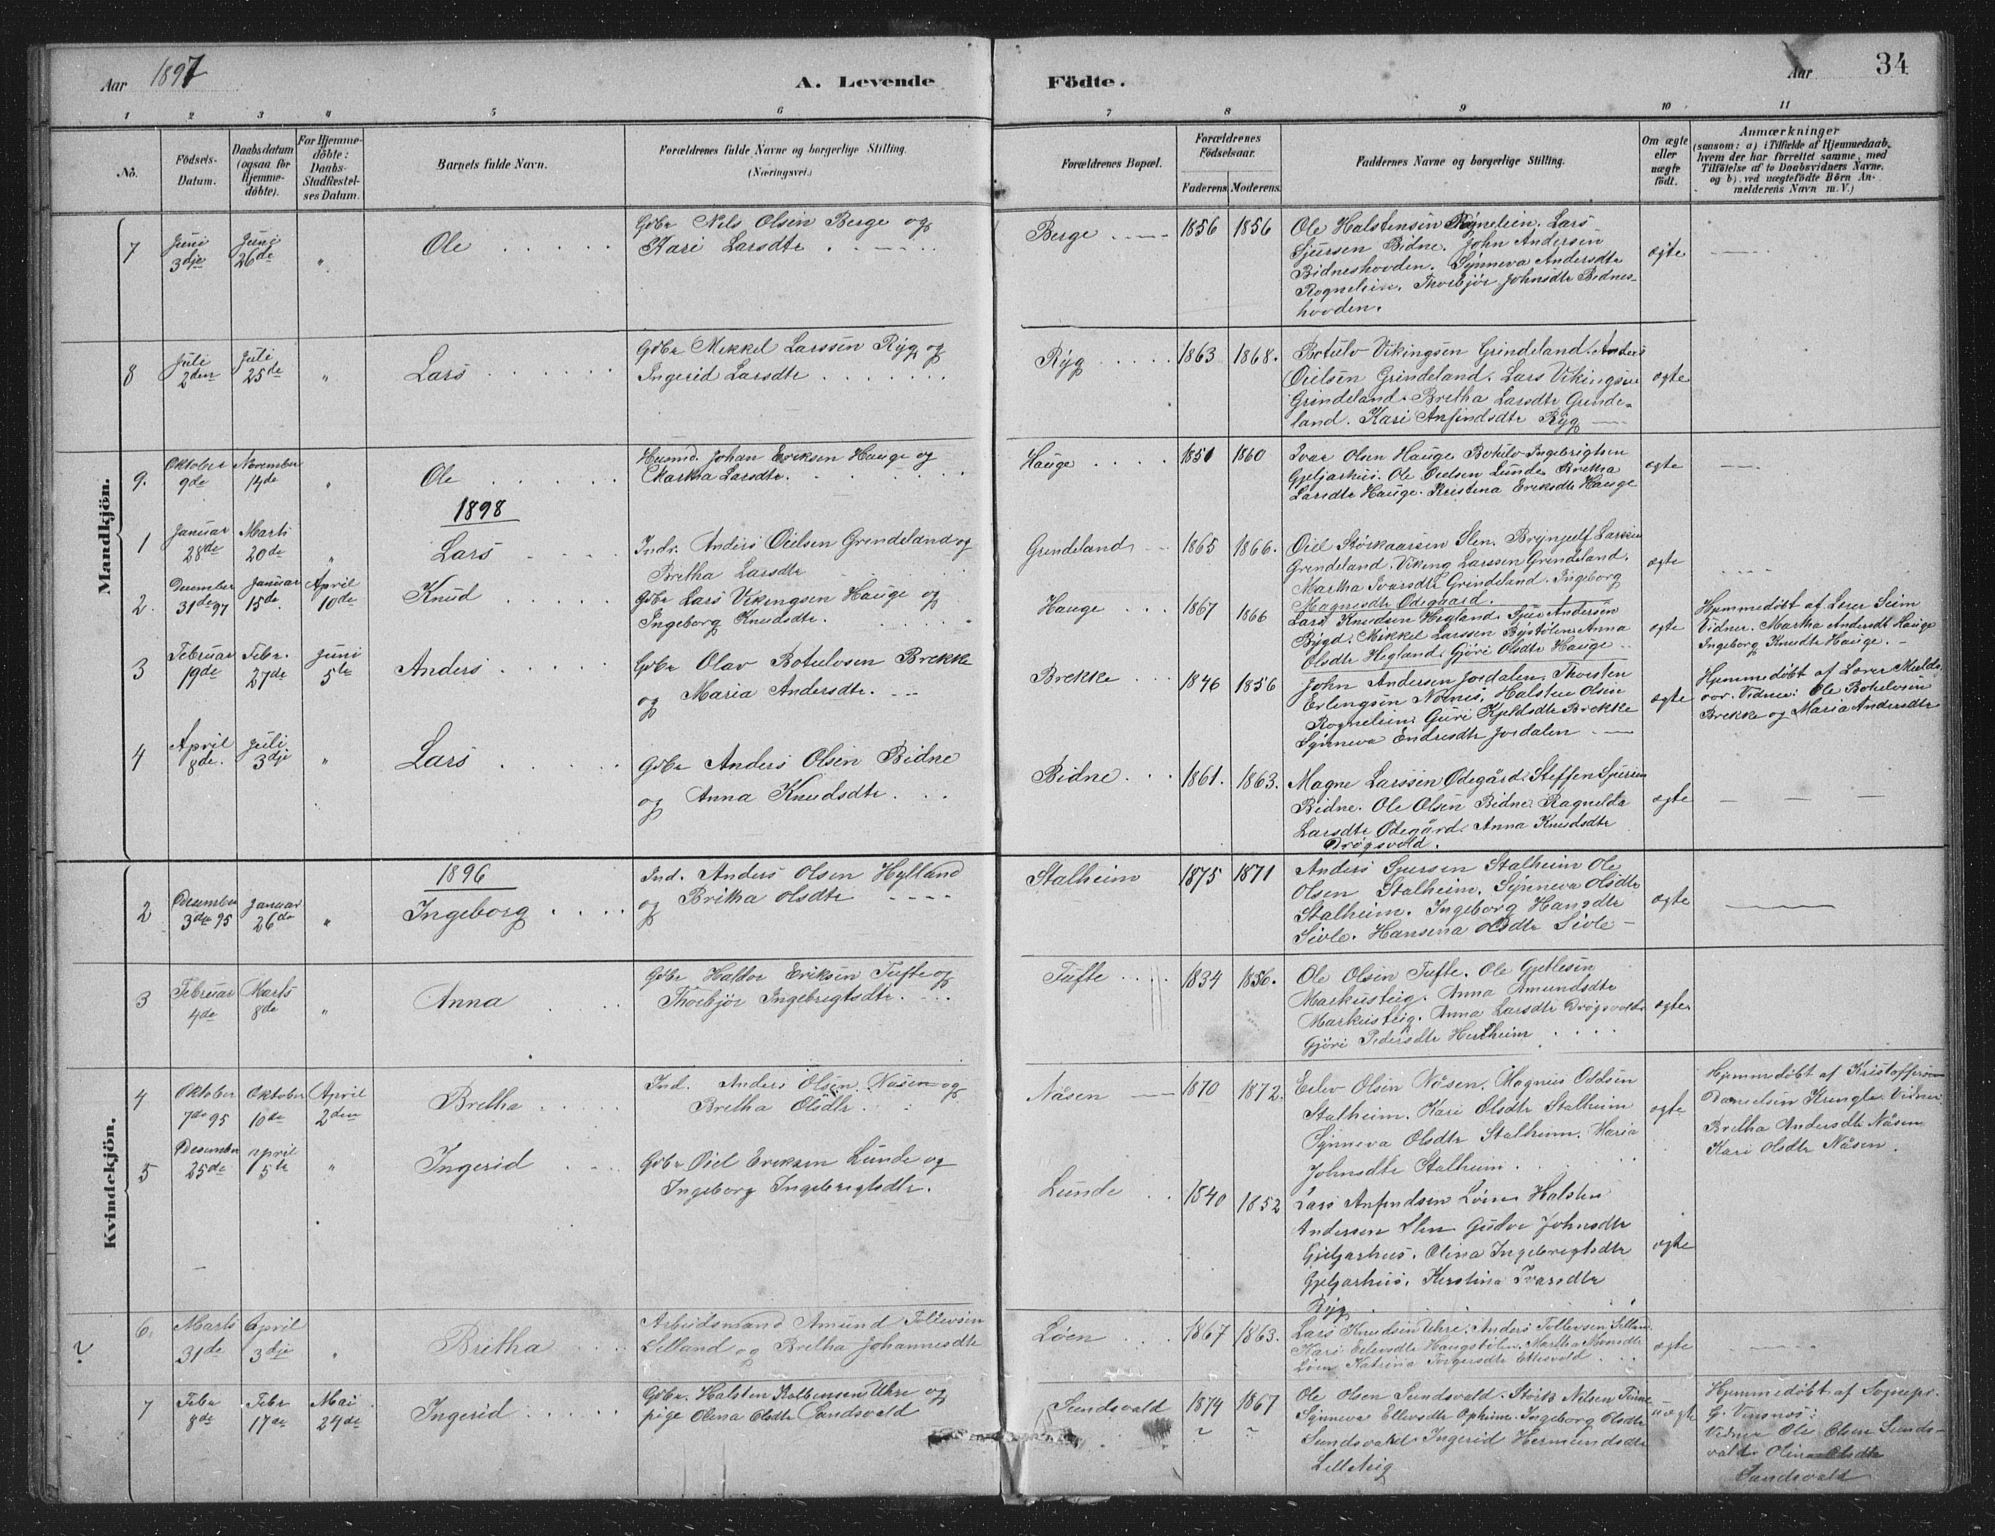 Aar 1897
A. Levende
Födte.
Aar
34
1 2 3 4 5 6 7 8 9 10 11
No.
Födsels-
Datum.
Daabsdatum
(ogsaa for
Hjemme-
döbte).
For Hjemme-
döbte:
Daabs-
Stadfestel-
ses Datum.
Barnets fulde Navn.
Forældrenes fulde Navne og borgerlige Stilling.
(Næringsvei.)
Forældrenes Bopæl.
Forældrenes
Födselsaar.
Faderens. Moderens.
Faddernes Navne og borgerlige Stilling.
Om ægte
eller
uægte
födt.
Anmærkninger
(saasom: a) i Tilfælde af Hjemmedaab,
hvem der har forrettet samme, med
Tilföielse af to Daabsvidners Navne,
og b) ved uægtefödte Börn An-
melderens Navn m. V.)
Mandkjön.
7 Juni 3dje Juni 26de " Ole
Gbr Nils Olsen Berge og
Kari Larsdtr
Berge 1856 1856
Ole Halstensen Rognelien. Lars
Sjursen Bidne. John Andersen
Bidneshovden. Synneva Andersdtr
Rognelien. Thorbjør Johnsdtr Bidnes-
hovden.
ægte
8 Juli 2den Juli 25de " Lars
Gbr Mikkel Larssen Ryg og
Ingerid Larsdtr
Ryg 1863 1868.
Botulv Vikingsen Grindeland. Anders
Oielsen Grindeland. Lars Vikingsen
Grindeland. Bretha Larsdtr Grinde-
land. Kari Anfindsdtr Ryg
ægte
9. Oktober 9de November 14de " Ole
Husmd. Johan Eriksen Hauge og
Martha Larsdtr.
Hauge 1851 1860
Ivar Olsen Hauge Botulv Ingebrigtsen
Gjeljarhus. Ole Oielsen Lunde Bretha
Larsdtr Hauge. Kristina Eriksdtr Hauge
ægte
1898
1 Januar 28de Marts 20de " Lars
Indr. Anders Oielsen Grindeland og
Bretha Larsdtr
Grindeland 1865 1866.
Oiel Storkaarsen Slen. Brynjulf Larssen
Grindeland. Viking Larssen Grindeland.
Martha Ivarsdtr Grindeland. Ingeborg
Magnesdtr Ødegaard.
ægte
2. December 31de 97 Januar 15de. April 10de Knud
Gbr Lars Vikingsen Hauge og
Ingeborg Knudsdtr.
Hauge 1867 1866
Lars Knudsen Hegland. Sjur Andersen
Bygd. Mikkel Larssen Bystølen. Anna
Olsdtr Hegland. Gjøri Olsdtr Hauge
ægte
Hjemmedøbt af Lærer Seim
Vidner. Martha Andersdt Hauge
Ingeborg Knudtr Hauge.
3 Februar 19de Febr. 27de Juni 5te Anders
Gbr Olav Botulvsen Brekke
og Maria Andersdtr.
Brekke 1846 1856
John Andersen Jordalen. Thorsten
Erlengsen Nornes. Halsten Olsen
Rognelien. Guri Kjeldsdtr Brekke
Synneva Endresdtr Jordalen
ægte
Hjemmedøbt af Lærer
Vidner: Ole Botulvsen
Brekke og Maria Andersdtr
4 April 8de. Juli 3dje " Lars
Gbr Anders Olsen Bidne
og Anna Knudsdtr
Bidne 1861. 1863.
Magne Larssen Ødegård. Steffen Sjursen
Bidne. Ole Olsen Bidne. Ragnelda
Larsdtr Ødegård. Anna Knudsdtr
Drøgsvold.
ægte
Kvindekjön.
1896
2 December 3de 95 Januar 26de " Ingeborg
Ind. Anders Olsen Hylland
og Britha Olsdtr
Stalheim 1875 1871
Anders Sjursen Stalheim Ole
Olsen Stalheim. Synneva Olsdtr
Stalheim. Ingeborg Hansdtr
Sivle. Hansena Olsdtr Sivle
ægte
3 Februar 4de Marts 8de " Anna
Gbr Haldor Eriksen Tufte og
Thorbjør Ingebrigtsdtr.
Tufte 1834 1856.
Ole Olsen Tufte. Ole Gjetlesen
Markusteig. Anna Amundsdtr
Markusteig. Anna Larsdtr Drøgsvold.
Gjøri Pedersdtr Helheim
ægte
4 Oktober 7de 95 Oktober 10de April 2den Bretha
Ind. Anders Olsen Nåsen og
Bretha Olsdtr
Nåsen 1870 1872.
Eilev Olsen Nåsen. Magnus Oddsen
Stalheim. Kari Olsdtr Stalheim
Synneva Olsdtr Stalheim. Maria
Johnsdtr Stalheim.
ægte
Hjemmedøbt af Kristofferson
Danielsen Kringle. Vidner
Bretha Andersdtr Nåsen
Kari Olsdtr Nåsen.
5 Desember 25de april 5te " Ingerid
Gbr Oiel Eriksen Lunde og
Ingeborg Ingebrigtsdtr.
Lunde 1840 1852
Lars Anfindsen Løen. Halsten
Andersen Slen Gudve Johnsdtr
Gjeljarhus. Olina Ingebrigtsdtr
Gjeljarhus. Kerstina Ivarsdtr
Ryg
ægte
?
6. Marts 31de April 3dje " Bretha
Arbeidsmand Amund Tollevsen
Selland og Bretha Johannesdtr
Løen 1867 1863.
Lars Knudsen Uhre. Anders Tollevsen Selland.
Kari Eilevsdtr Haugstølen. Martha Monsdtr
Løen Katrina Torgersdtr
ægte
7 Febr 8de Febr 17de Mai 24de Ingerid
Gbr. Halsten Kolbensen Uhre og
pige Olina Olsdtr Sundsvold
Sundsvold 1874 1867
Ole Olsen Sundsvold. Nilsen
Synneva Ellevsdtr Opheim. Ingeborg Olsdtr
Sundsvold Ingerid Hermundsdtr
uægte
Hjemmedøbt af Sognepr.
G. Vinsnes:
Vidner Ole Olsen Sunds-
vold Olina Olsdtr
Sundsvold